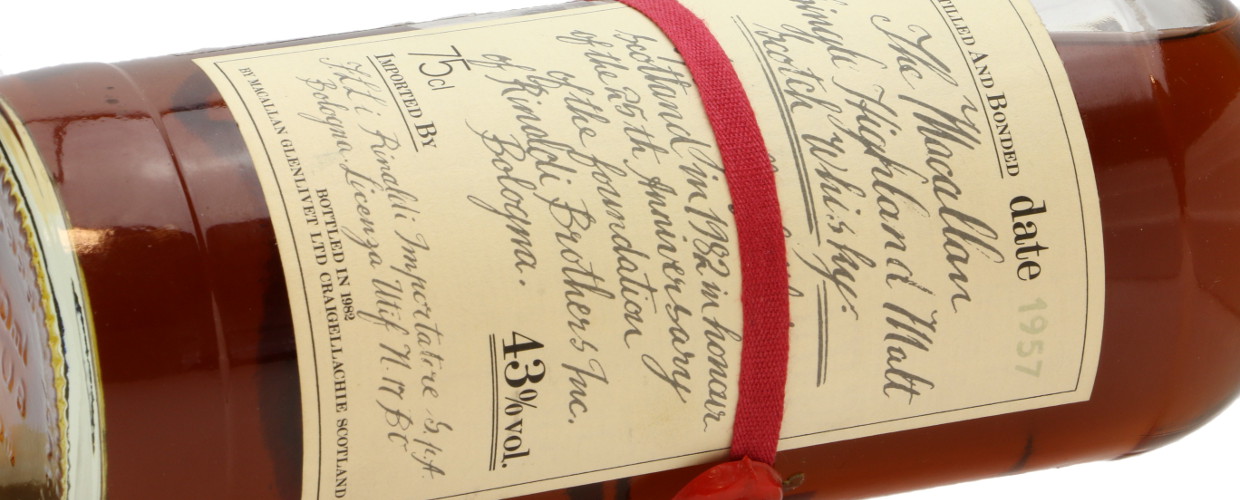 TILLED AND BONDED date 1957
The Macallan
Single Highland Malt
Scotch Whisky.
bottled in 1982 in honour
of the 25th Anniversary
of the foundation
of Rinaldi Brothers Inc.
Bologna.
75cl
43% vol.
IMPORTED BY
F.lli Rinaldi Importatori S.p.A
Bologna-Licenza Utif N. 17 BO
BOTTLED IN 1982
BY MACALLAN GLENLIVET LTD CRAIGELLACHIE SCOTLAND